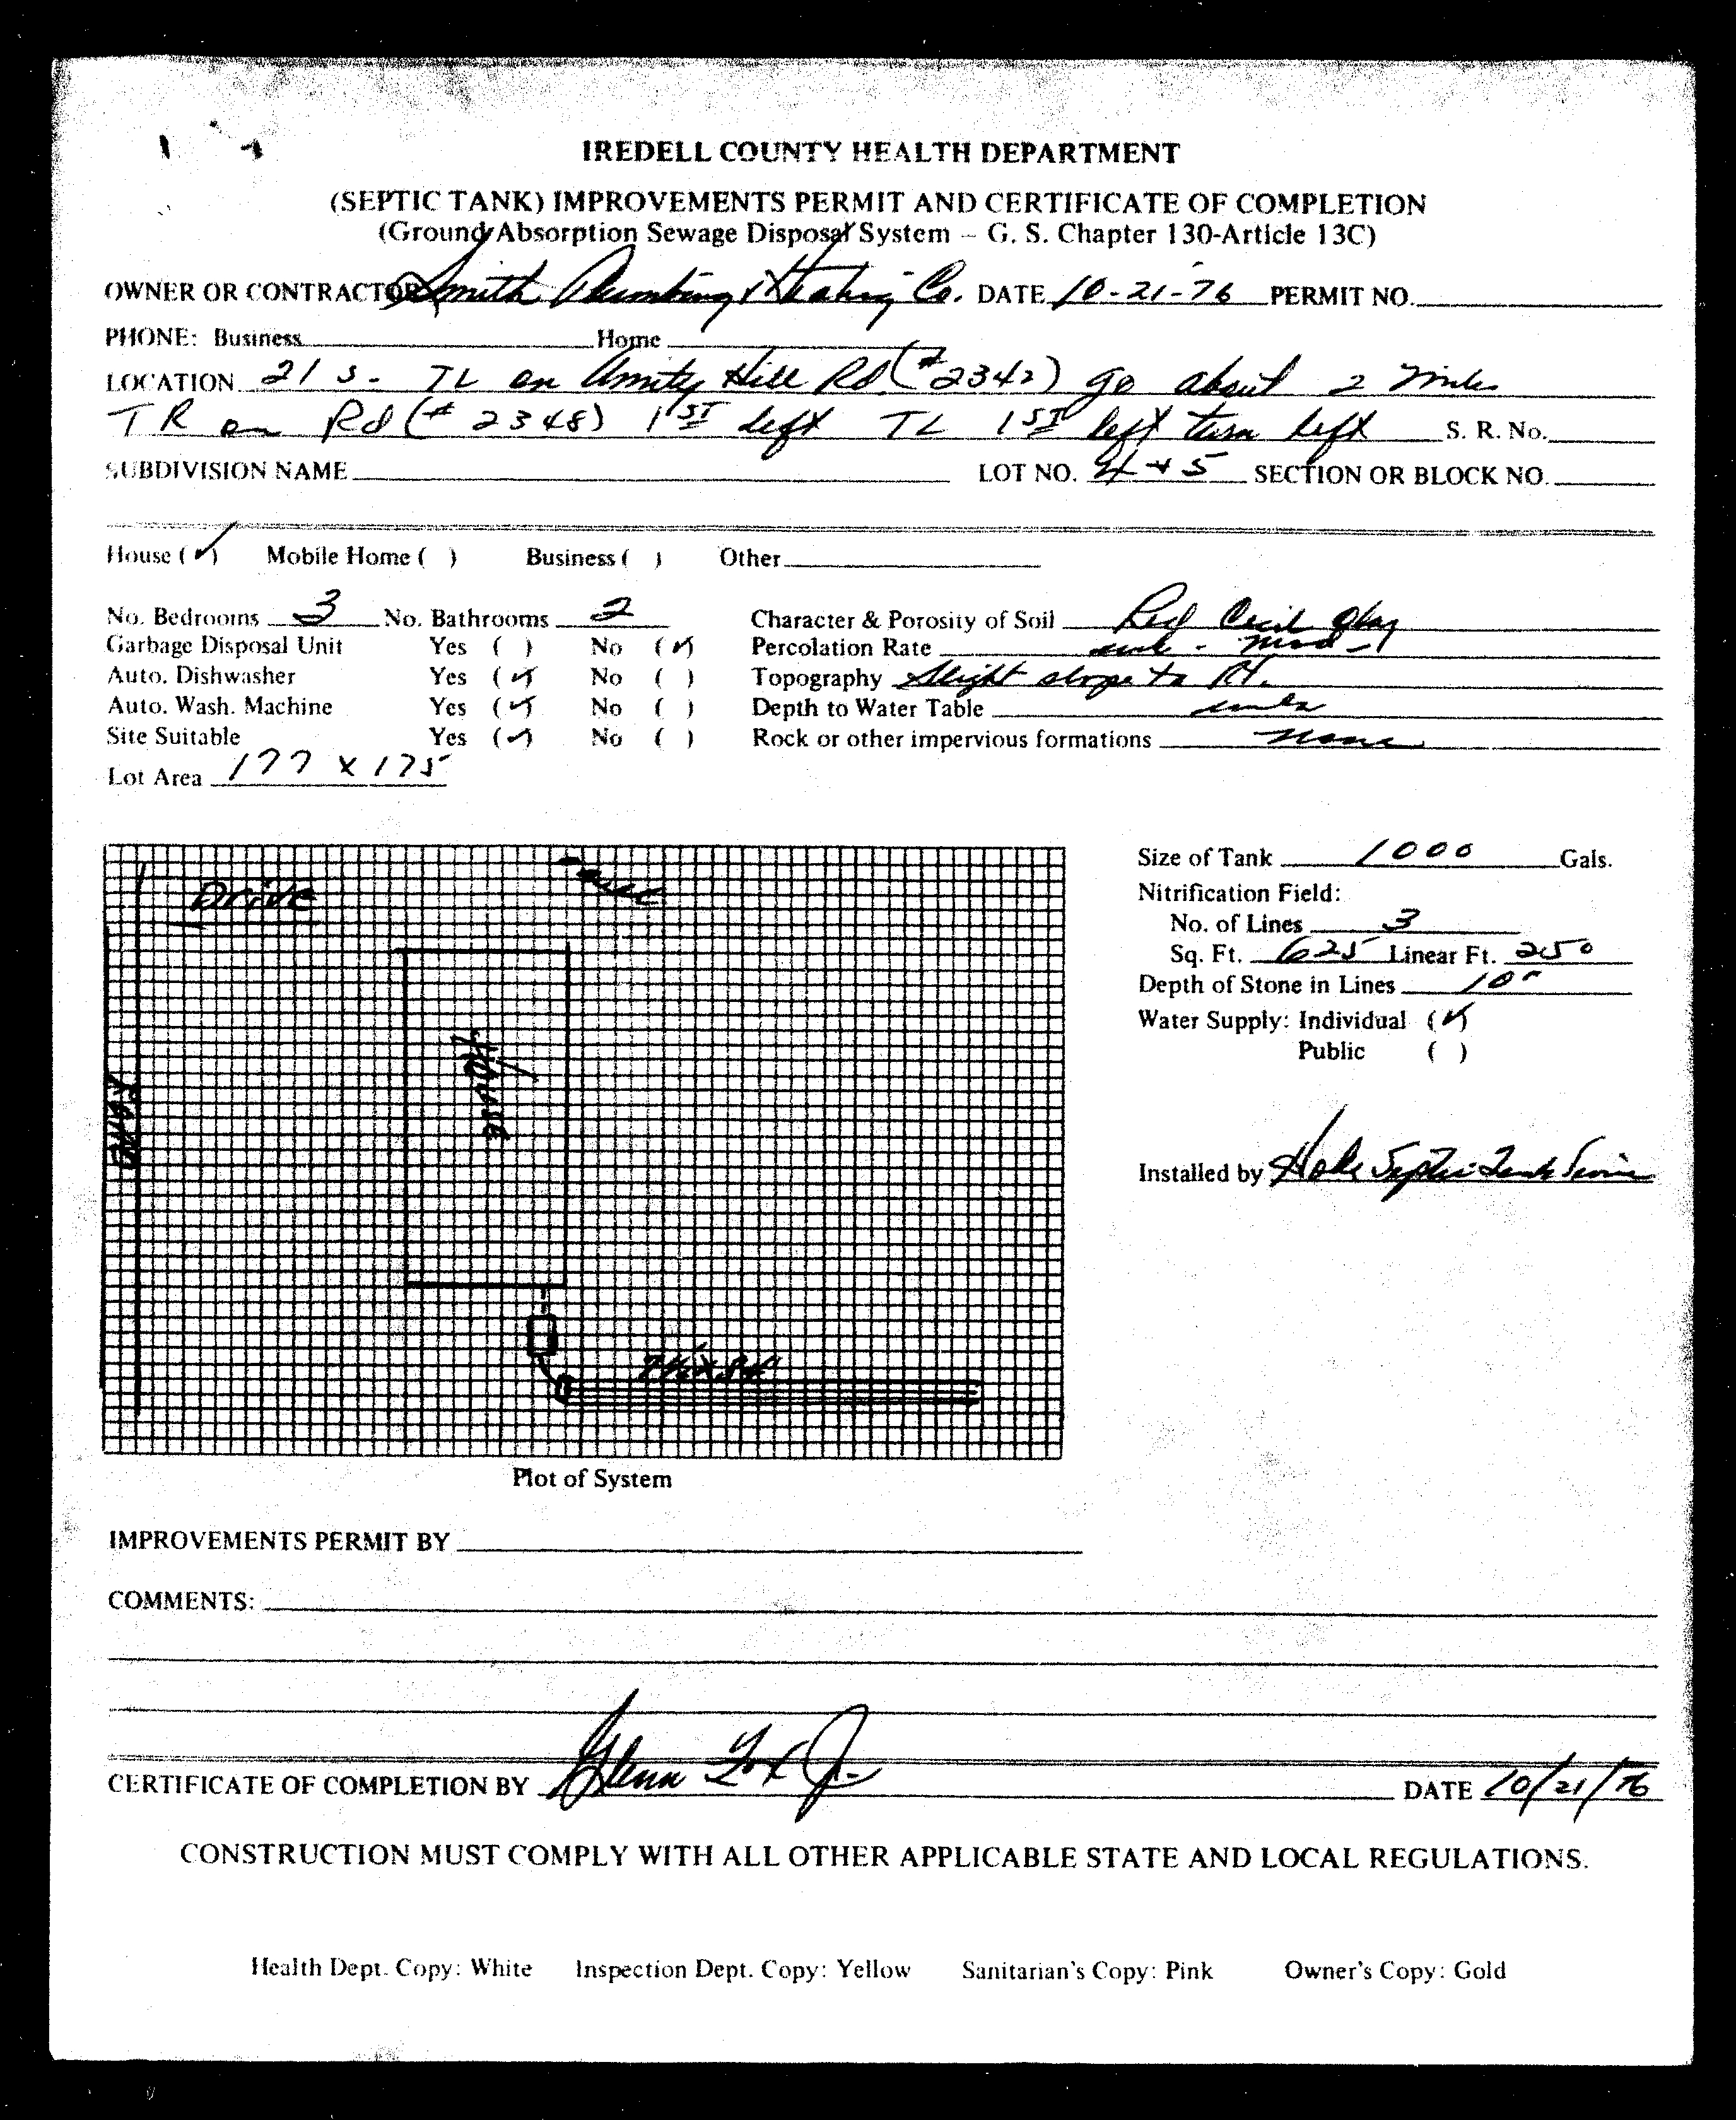 IREDELL COUNTY HEALTH DEPARTMENT
(SEPTIC TANK) IMPROVEMENTS PERMIT AND CERTIFICATE OF COMPLETION
(Ground Absorption Sewage Disposal System – G. S. Chapter 130-Article 13C)
OWNER OR CONTRACTOR Smith Plumbing & Heating Co. DATE 10-21-76 PERMIT NO.
PHONE: Business Home
LOCATION 21 S - TL on Amity Hill Rd (# 2342) go about 2 miles
TR on Rd (# 2348) 1ST left TL 1ST left turn left S. R. No.
SUBDIVISION NAME LOT NO. 4 + 5 SECTION OR BLOCK NO.
House (✓) Mobile Home ( ) Business ( ) Other
No. Bedrooms 3 No. Bathrooms 2 Character & Porosity of Soil Red Cecil Clay
Garbage Disposal Unit Yes ( ) No (✓) Percolation Rate - mod -
Auto. Dishwasher Yes (✓) No ( ) Topography Slight slope to Rt.
Auto. Wash. Machine Yes (✓) No ( ) Depth to Water Table
Site Suitable Yes (✓) No ( ) Rock or other impervious formations none
Lot Area 177 x 175
Size of Tank 1000 Gals.
Nitrification Field:
No. of Lines 3
Sq. Ft. 625 Linear Ft. 250
Depth of Stone in Lines 10"
Water Supply: Individual (✓)
Public ( )
Installed by Septic Tank Service
Drive
House
Plot of System
IMPROVEMENTS PERMIT BY
COMMENTS:
CERTIFICATE OF COMPLETION BY Glenn Fox Jr. DATE 10/21/76
CONSTRUCTION MUST COMPLY WITH ALL OTHER APPLICABLE STATE AND LOCAL REGULATIONS.
Health Dept. Copy: White Inspection Dept. Copy: Yellow Sanitarian's Copy: Pink Owner's Copy: Gold